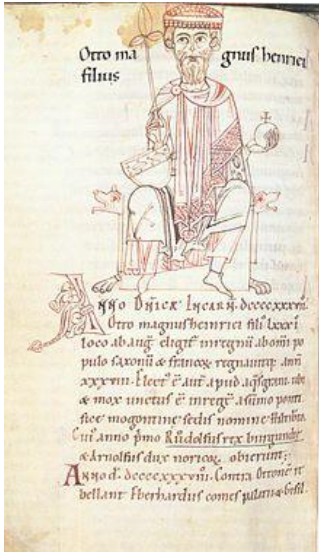 Otto ma gnus henrici
filius
Anno dñice incarñ. dccccxxxvii.
Otto magnus heinrici fili' lxxx i
loco ab aug. eligit in regnũ ab om̃i po
pulo saxonũ & francoᵣ regnauitq; ann̄
xxxviii. Elect' ẽ aut̃ apud aq̃sgrani. ubi
& mox unctus ẽ in regẽ a sũmo ponti
fice mogontine sedis nomine
Cui' anno p̃mo Růdolfus rex burgundie
& Arnolfus dux noricoᵣ obierunt;
Anno d. dccccxxxviii. Contra Ottonẽ
bellant Eberhardus comes palatin' & Gisil